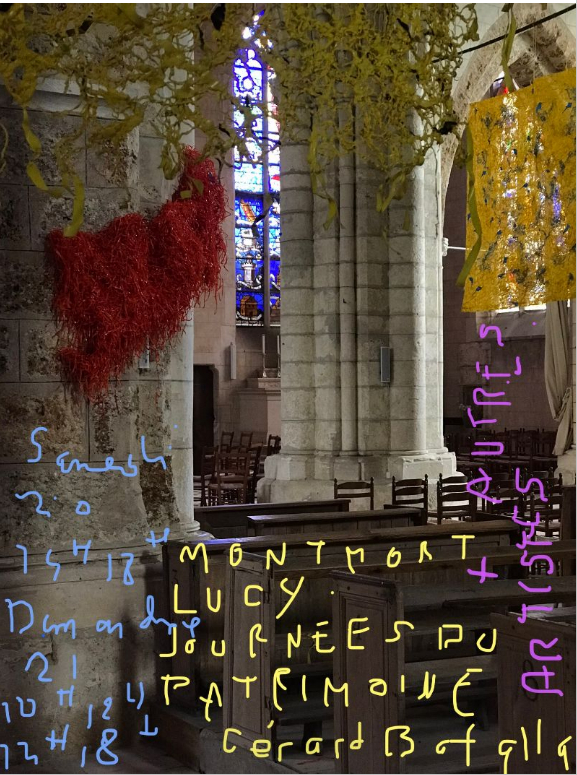 Samedi
20
15H 18H
Dimanche
21
10H 12H
MONTMORT
LUCY.
JOURNÉES DU
PATRIMOINE
Gérard Batalla
+ AUTRES
ARTISTES